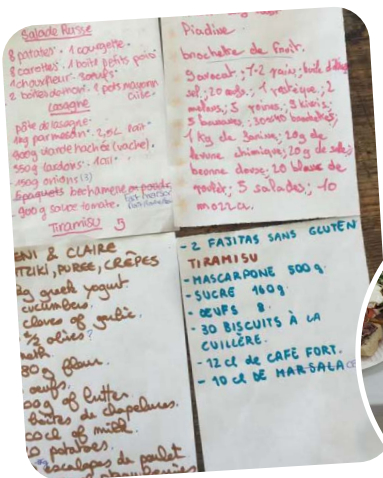 Salade Russe
8 patates. 1 courgette.
8 carottes. 1 boite petits pois
1 choux fleur. 8 oeufs.
2 boites de thon. 1 pots mayonn
Lasagne
pâte de lasagne.
1kg parmesan. 2,5L lait
900g viande hachée (vache).
550g lardons.
150g oignons (3)
5 paquets bechamel en poudre
900g sauce tomate.
Tiramisu 5
Piadine.
brochette de fruit.
sel; 20 1 pastèque; 2
melons; 5 5 kiwis;
5 bananes; 30
1 kg de farine; 20g de
levure chimique; 20g de sel;
20 blanc de
poulet; 5 salades; 10
mozza.
ENI & CLAIRE
TZIKI, PUREE, CRÊPES
g greek yogurt
cucumbers.
cloves of garlic.
1/2 olives?
30g flour.
oeufs.
00g of butter.
boîtes de chapelures.
00cl of milk.
potatoes.
escalopes de poulet
- 2 FAJITAS SANS GLUTEN
TIRAMISU
- MASCARPONE 500g.
- SUCRE 160g.
- OEUFS 8.
- 30 BISCUITS À LA
CUILLÈRE.
- 12 cl de CAFÉ FORT.
- 10 cl DE MARSALA